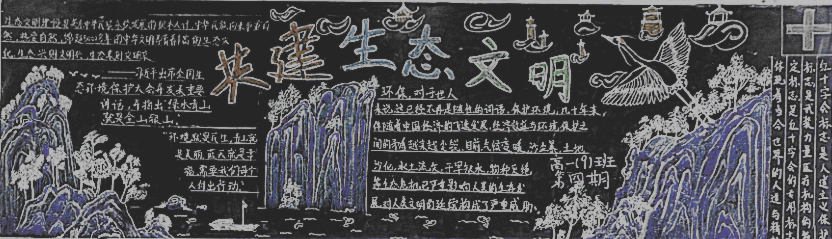 共建生态文明
生态文明建设是关乎中华民族永续发展的根本大计,中华民族向来尊重自
然、热爱自然,绵延5000多年的中华文明孕育着丰富的生态文
化,生态兴则文明兴,生态衰则文明衰。
——习近平出席全国生
态环境保护大会并发表重要
讲话,再指出“绿水青山
就是金山银山。”
“环境就是民生,青山就
是美丽,蓝天就是幸
福,需要我们每个
人付出行动。”
环保,对于世人
来说,这已经不再是陌生的词语,保护环境,几十年来,
伴随着中国经济的飞速发展,经济效益与环境保护之
间的矛盾越来越尖锐,目前气候变暖、
劣化,水土流失,干旱缺水,物种灭绝
等生态危机,已严重影响人类的生存发
展,对人类文明的延续构成了严重威胁。
高一(9)班
第四期
红十字会标志是人道主义保护
标志是武装力量医疗机构的
定标志是红十字会的专用标志
体现着当今世界的人道与